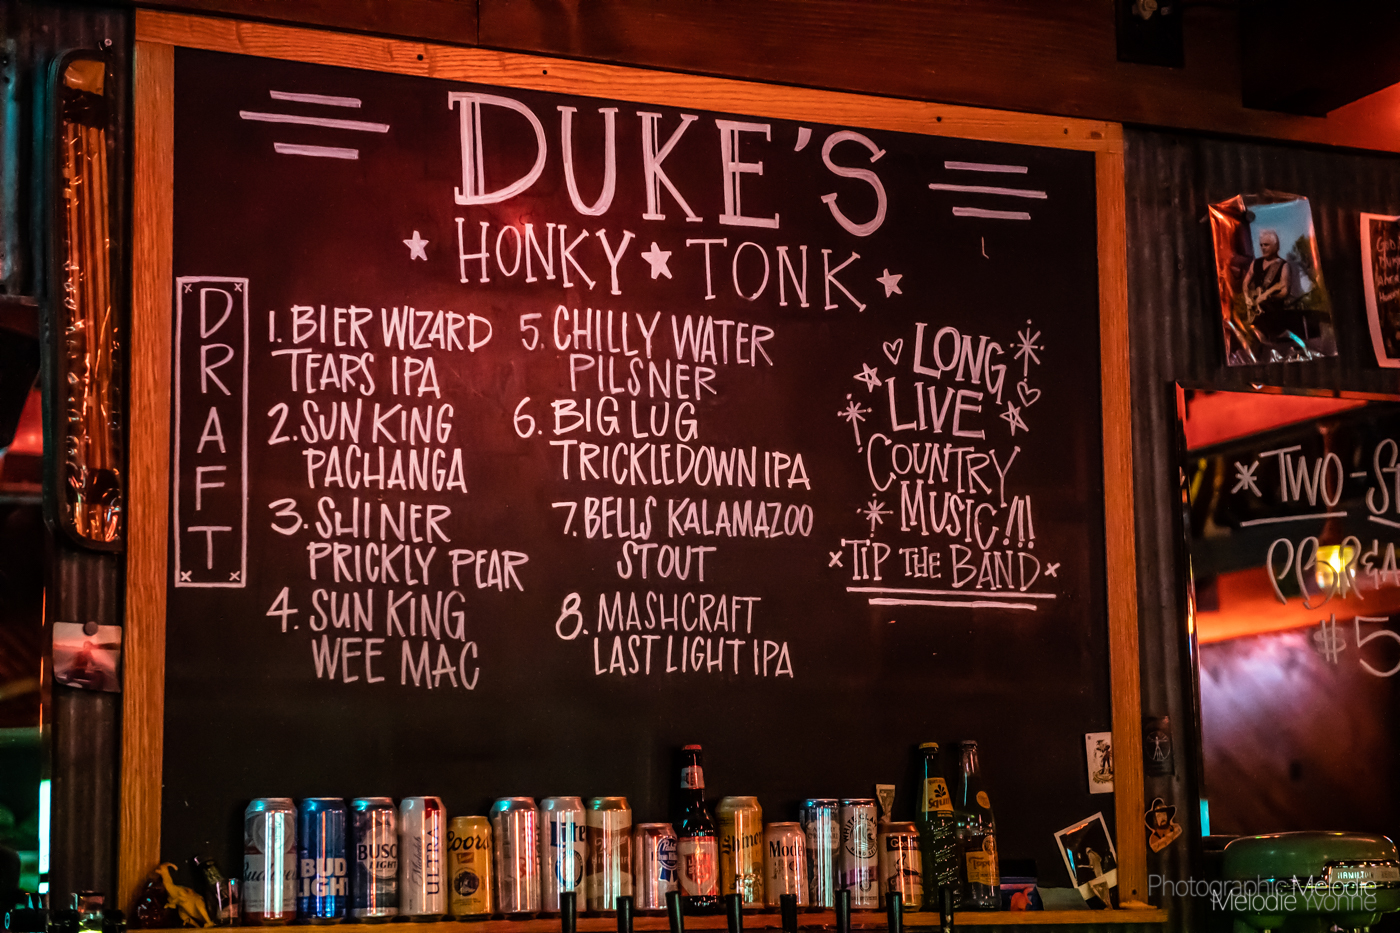 DUKE'S
HONKY TONK
DRAFT
1. BIER WIZARD
TEARS IPA
2. SUN KING
PACHANGA
3. SHINER
PRICKLY PEAR
4. SUN KING
WEE MAC
5. CHILLY WATER
PILSNER
6. BIG LUG
TRICKLEDOWN IPA
7. BELLS KALAMAZOO
STOUT
8. MASHCRAFT
LAST LIGHT IPA
LONG
LIVE
COUNTRY
MUSIC!!!
TIP THE BAND
TWO-S
PBR &
$5
BUD
LIGHT
BUSC
LIGHT
ULTRA
Coors
Lite
Shiner
Mode
HAMILT
Photographic Melodie
Melodie Yvonne